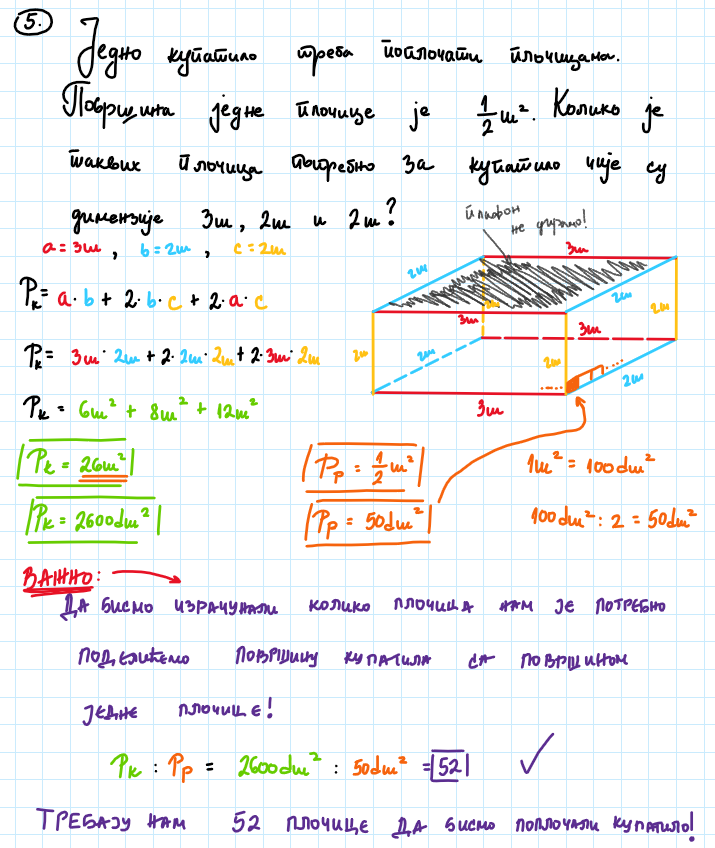 5.
Једно купатило треба поплочати плочицама.
Површина једне плочице је 1/2 m². Колико је
таквих плочица потребно за купатило чије су
димензије 3m, 2m и 2m?
плафон
не дирамо!
a = 3m, b = 2m, c = 2m
3m
2m
2m
Pₖ = a · b + 2 · b · c + 2 · a · c
2m
3m
3m
2m
2m
2m
2m
3m
Pₖ = 3m · 2m + 2 · 2m · 2m + 2 · 3m · 2m
Pₖ = 6m² + 8m² + 12m²
Pₖ = 26m²
Pₚ = 1/2 m²
1m² = 100dm²
Pₖ = 2600dm²
Pₚ = 50dm²
100dm² : 2 = 50dm²
ВАЖНО:
ДА БИСМО ИЗРАЧУНАЛИ КОЛИКО ПЛОЧИЦА НАМ ЈЕ ПОТРЕБНО
ПОДЕЛИЋЕМО ПОВРШИНУ КУПАТИЛА СА ПОВРШИНОМ
ЈЕДНЕ ПЛОЧИЦЕ!
Pₖ : Pₚ = 2600dm² : 50dm² = 52
ТРЕБАЈУ НАМ 52 ПЛОЧИЦЕ ДА БИСМО ПОПЛОЧАЛИ КУПАТИЛО!